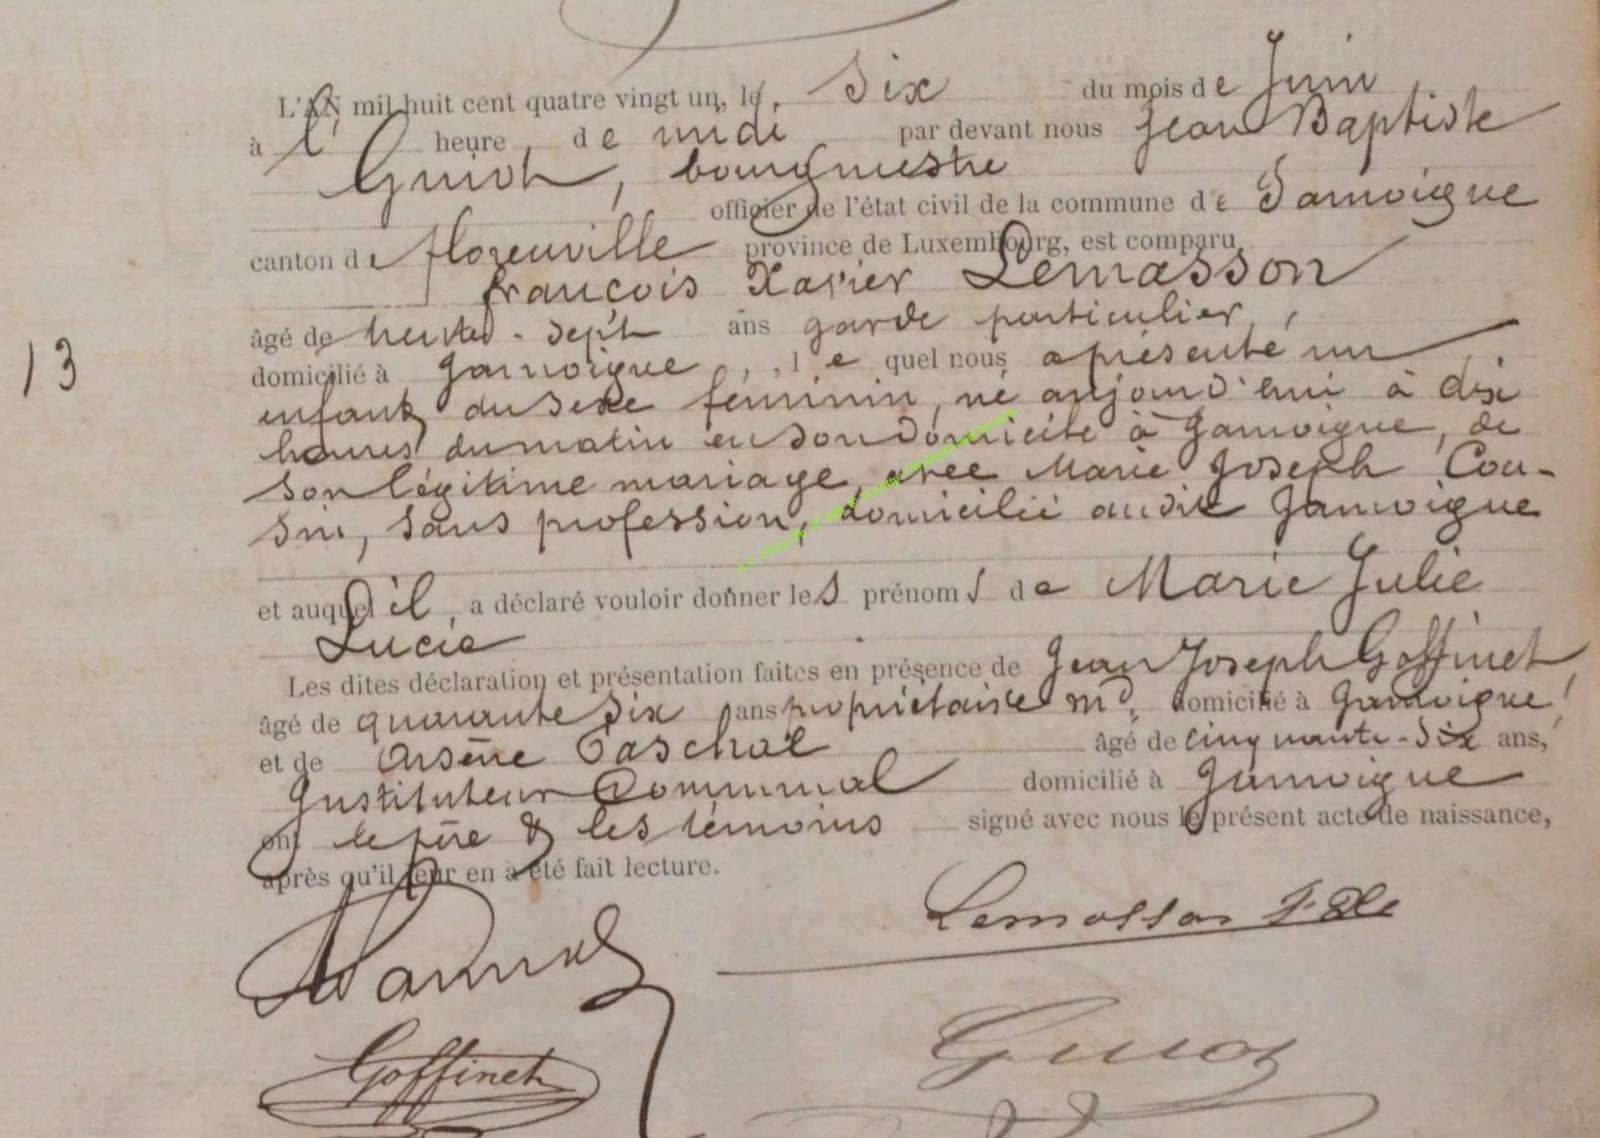 L'AN mil huit cent quatre vingt un, le six du mois de Juin
à l' heure de midi par devant nous Jean Baptiste
Guiot, bourgmestre
officier de l'état civil de la commune de Jamoigne
canton de florenville province de Luxembourg, est comparu
françois Xavier Lemasson
âgé de trente-sept ans garde particulier,
domicilié à Jamoigne, le quel nous a présenté un
enfant du sexe féminin, né aujourd'hui à dix
heures du matin en son domicile à Jamoigne, de
son légitime mariage, avec Marie Joseph Cou-
sin, sans profession, domicilié audit Jamoigne
et auquel il, a déclaré vouloir donner les prénoms de Marie Julie
Lucie
Les dites déclaration et présentation faites en présence de Jean Joseph Goffinet,
âgé de quarante six ans propriétaire md. domicilié à Jamoigne
et de Arsène Paschal âgé de cinquante-six ans,
Instituteur Communal domicilié à Jamoigne
ont le père & les témoins signé avec nous le présent acte de naissance,
après qu'il leur en a été fait lecture.
13
Lemasson F. Xe
Goffinet
Guiot